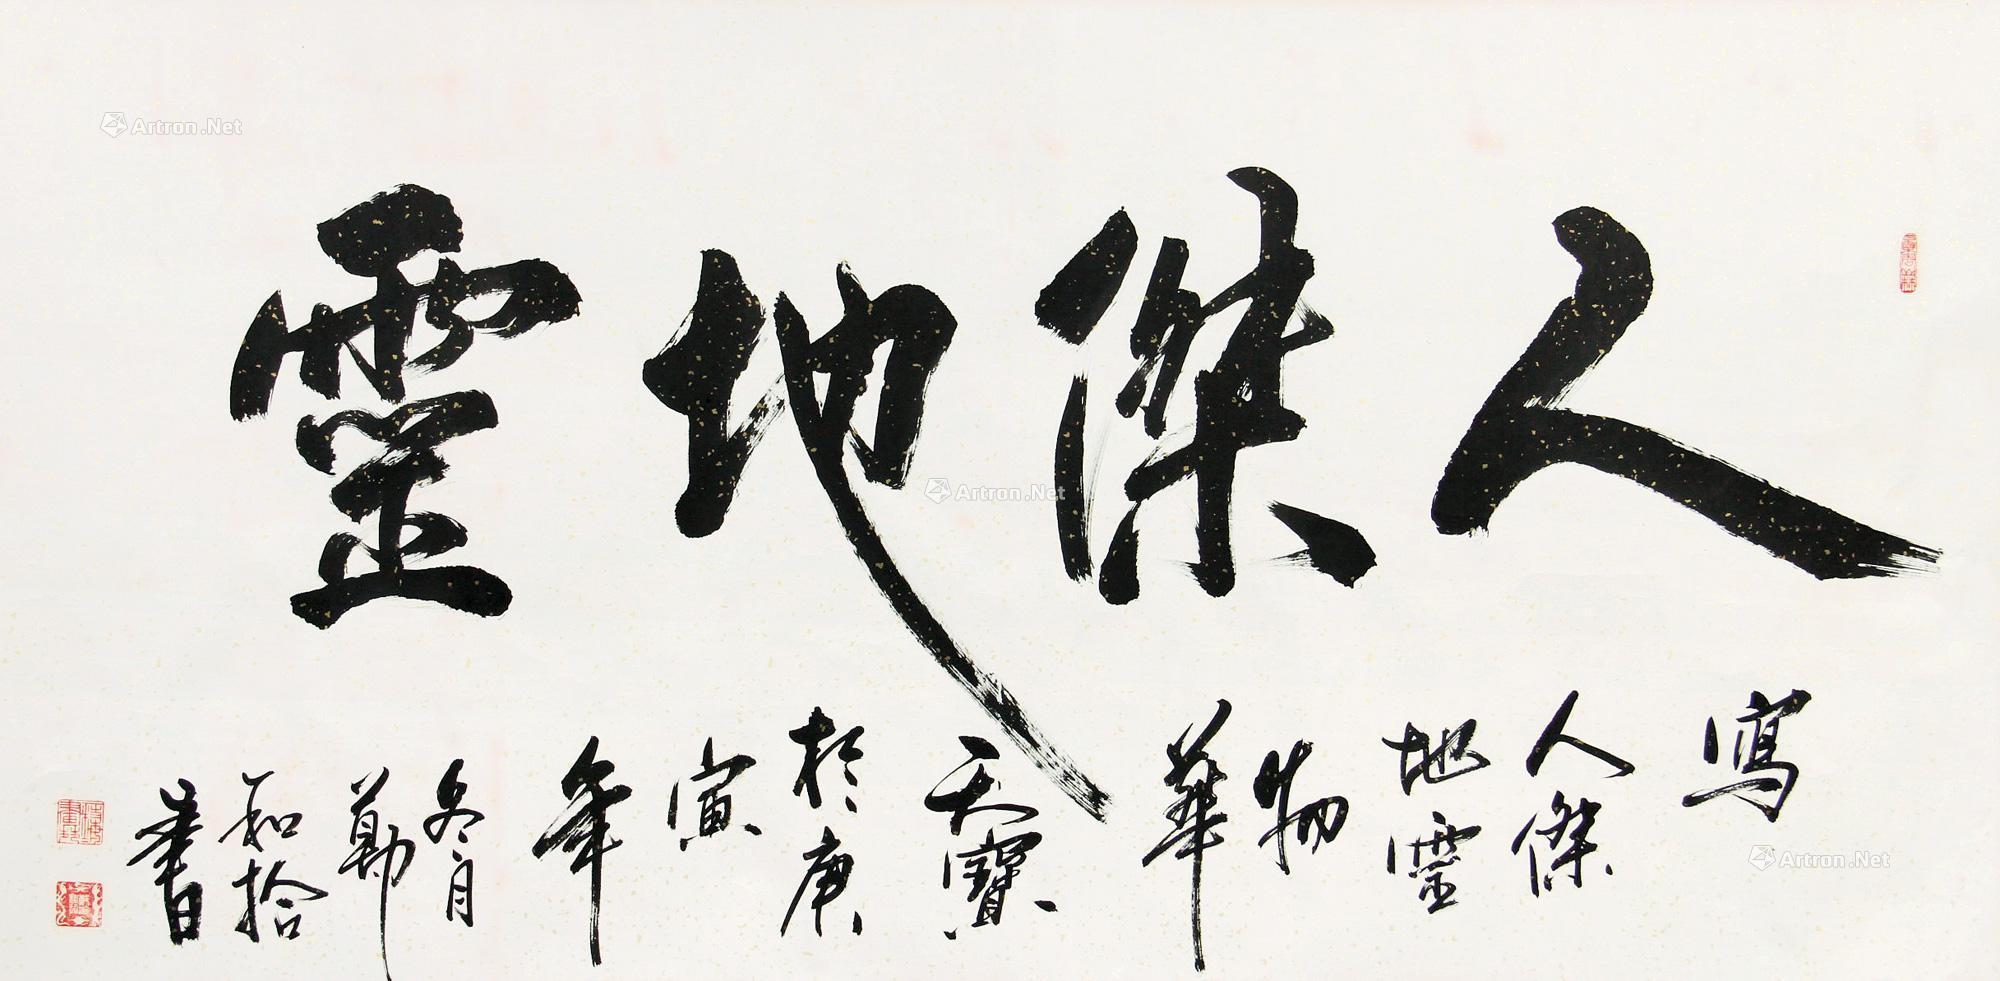 人傑地靈
寫
人傑
地靈
物
華
天寶
於庚
寅
年
冬月
勤
和拾
書
Artron.Net
Artron.Net
Artron.Net